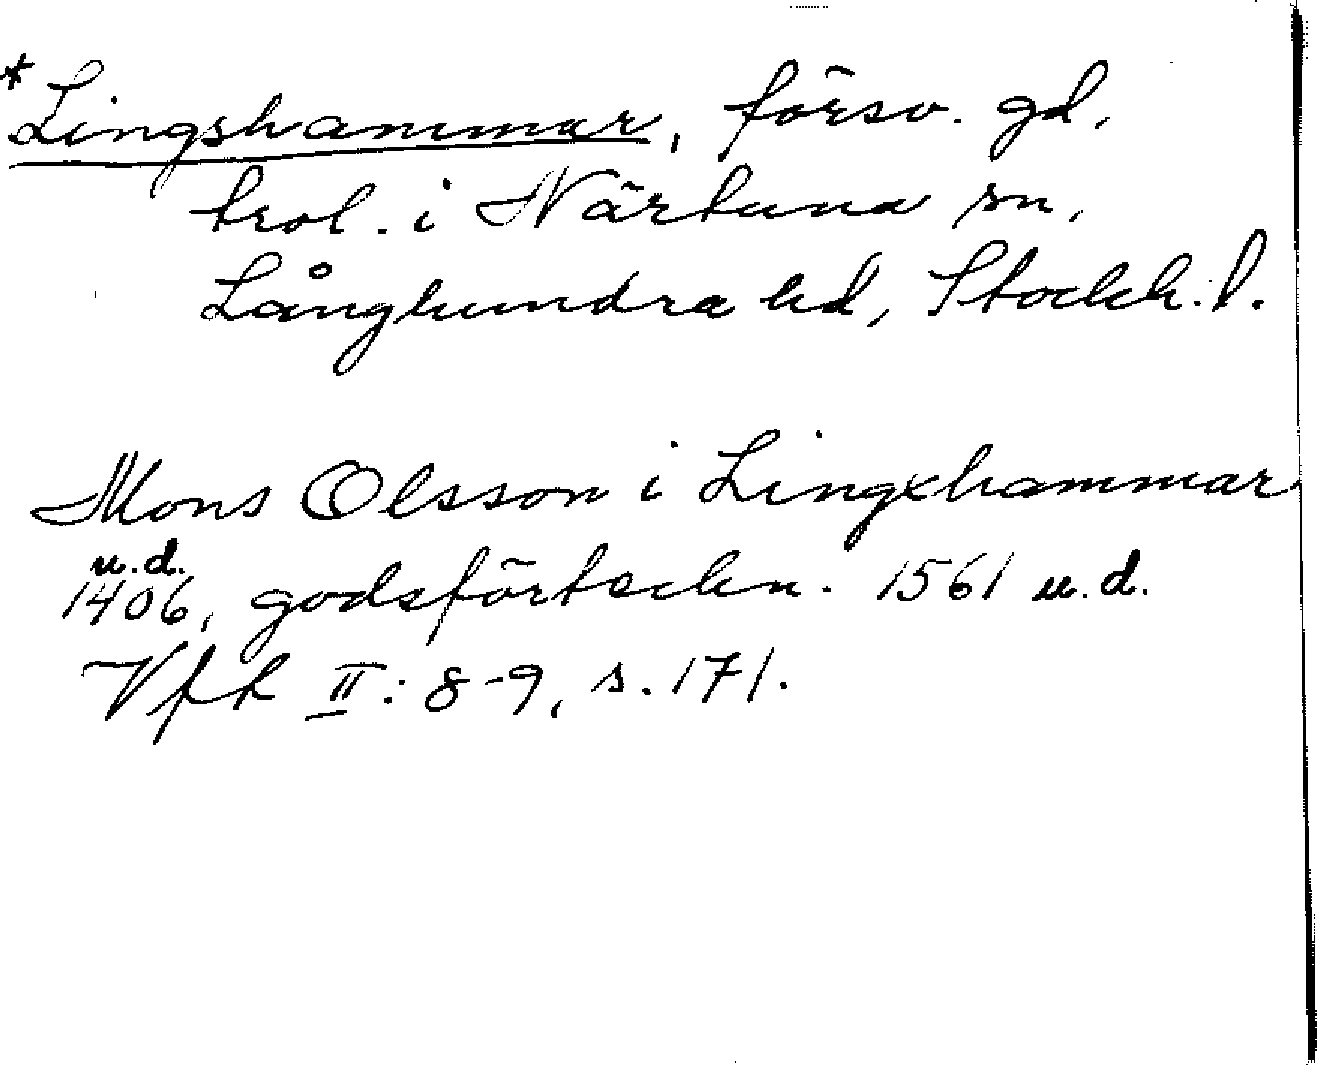 *Lingshammar, försv. gd,
trol. i Närtuna sn,
Långhundra hd, Stockh. l.
Mons Olsson i Lingxhammar
u.d.
1406, godsförteckn. 1561 u.d.
Vfk II: 8-9, s. 171.